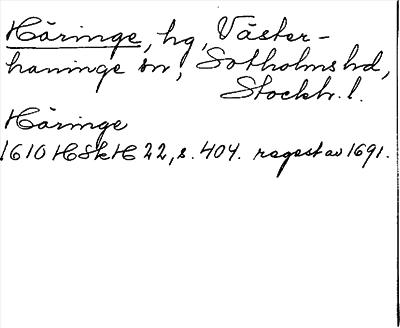 Häringe, hg, Väster-
haninge sn, Sotholms hd,
Stockh. l.
Häringe
1610 HSkH 22, s. 404. regest av 1691.